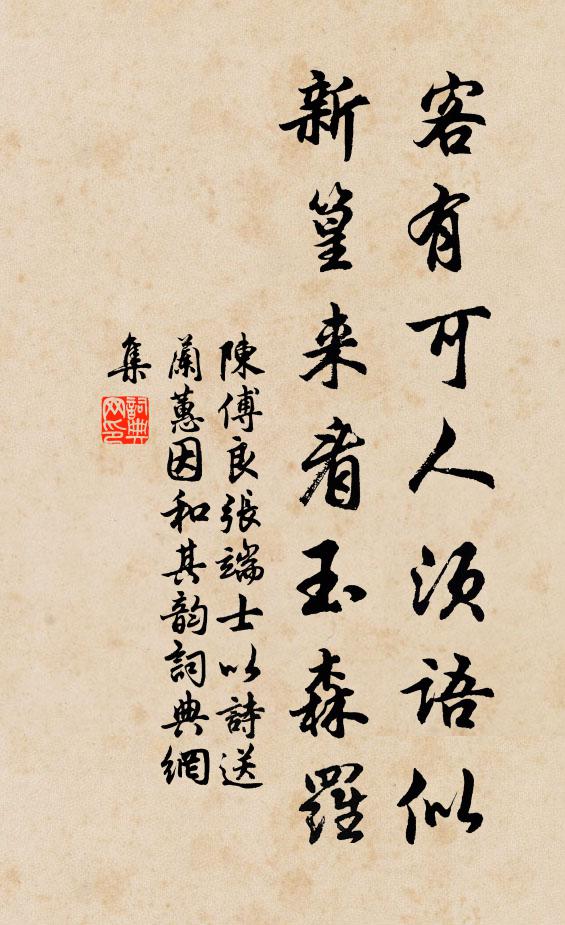 客有可人須語似
新篁来看玉森羅
陳傅良張端士以詩送
蘭蕙因和其韵詞典網
集
詞典
网印